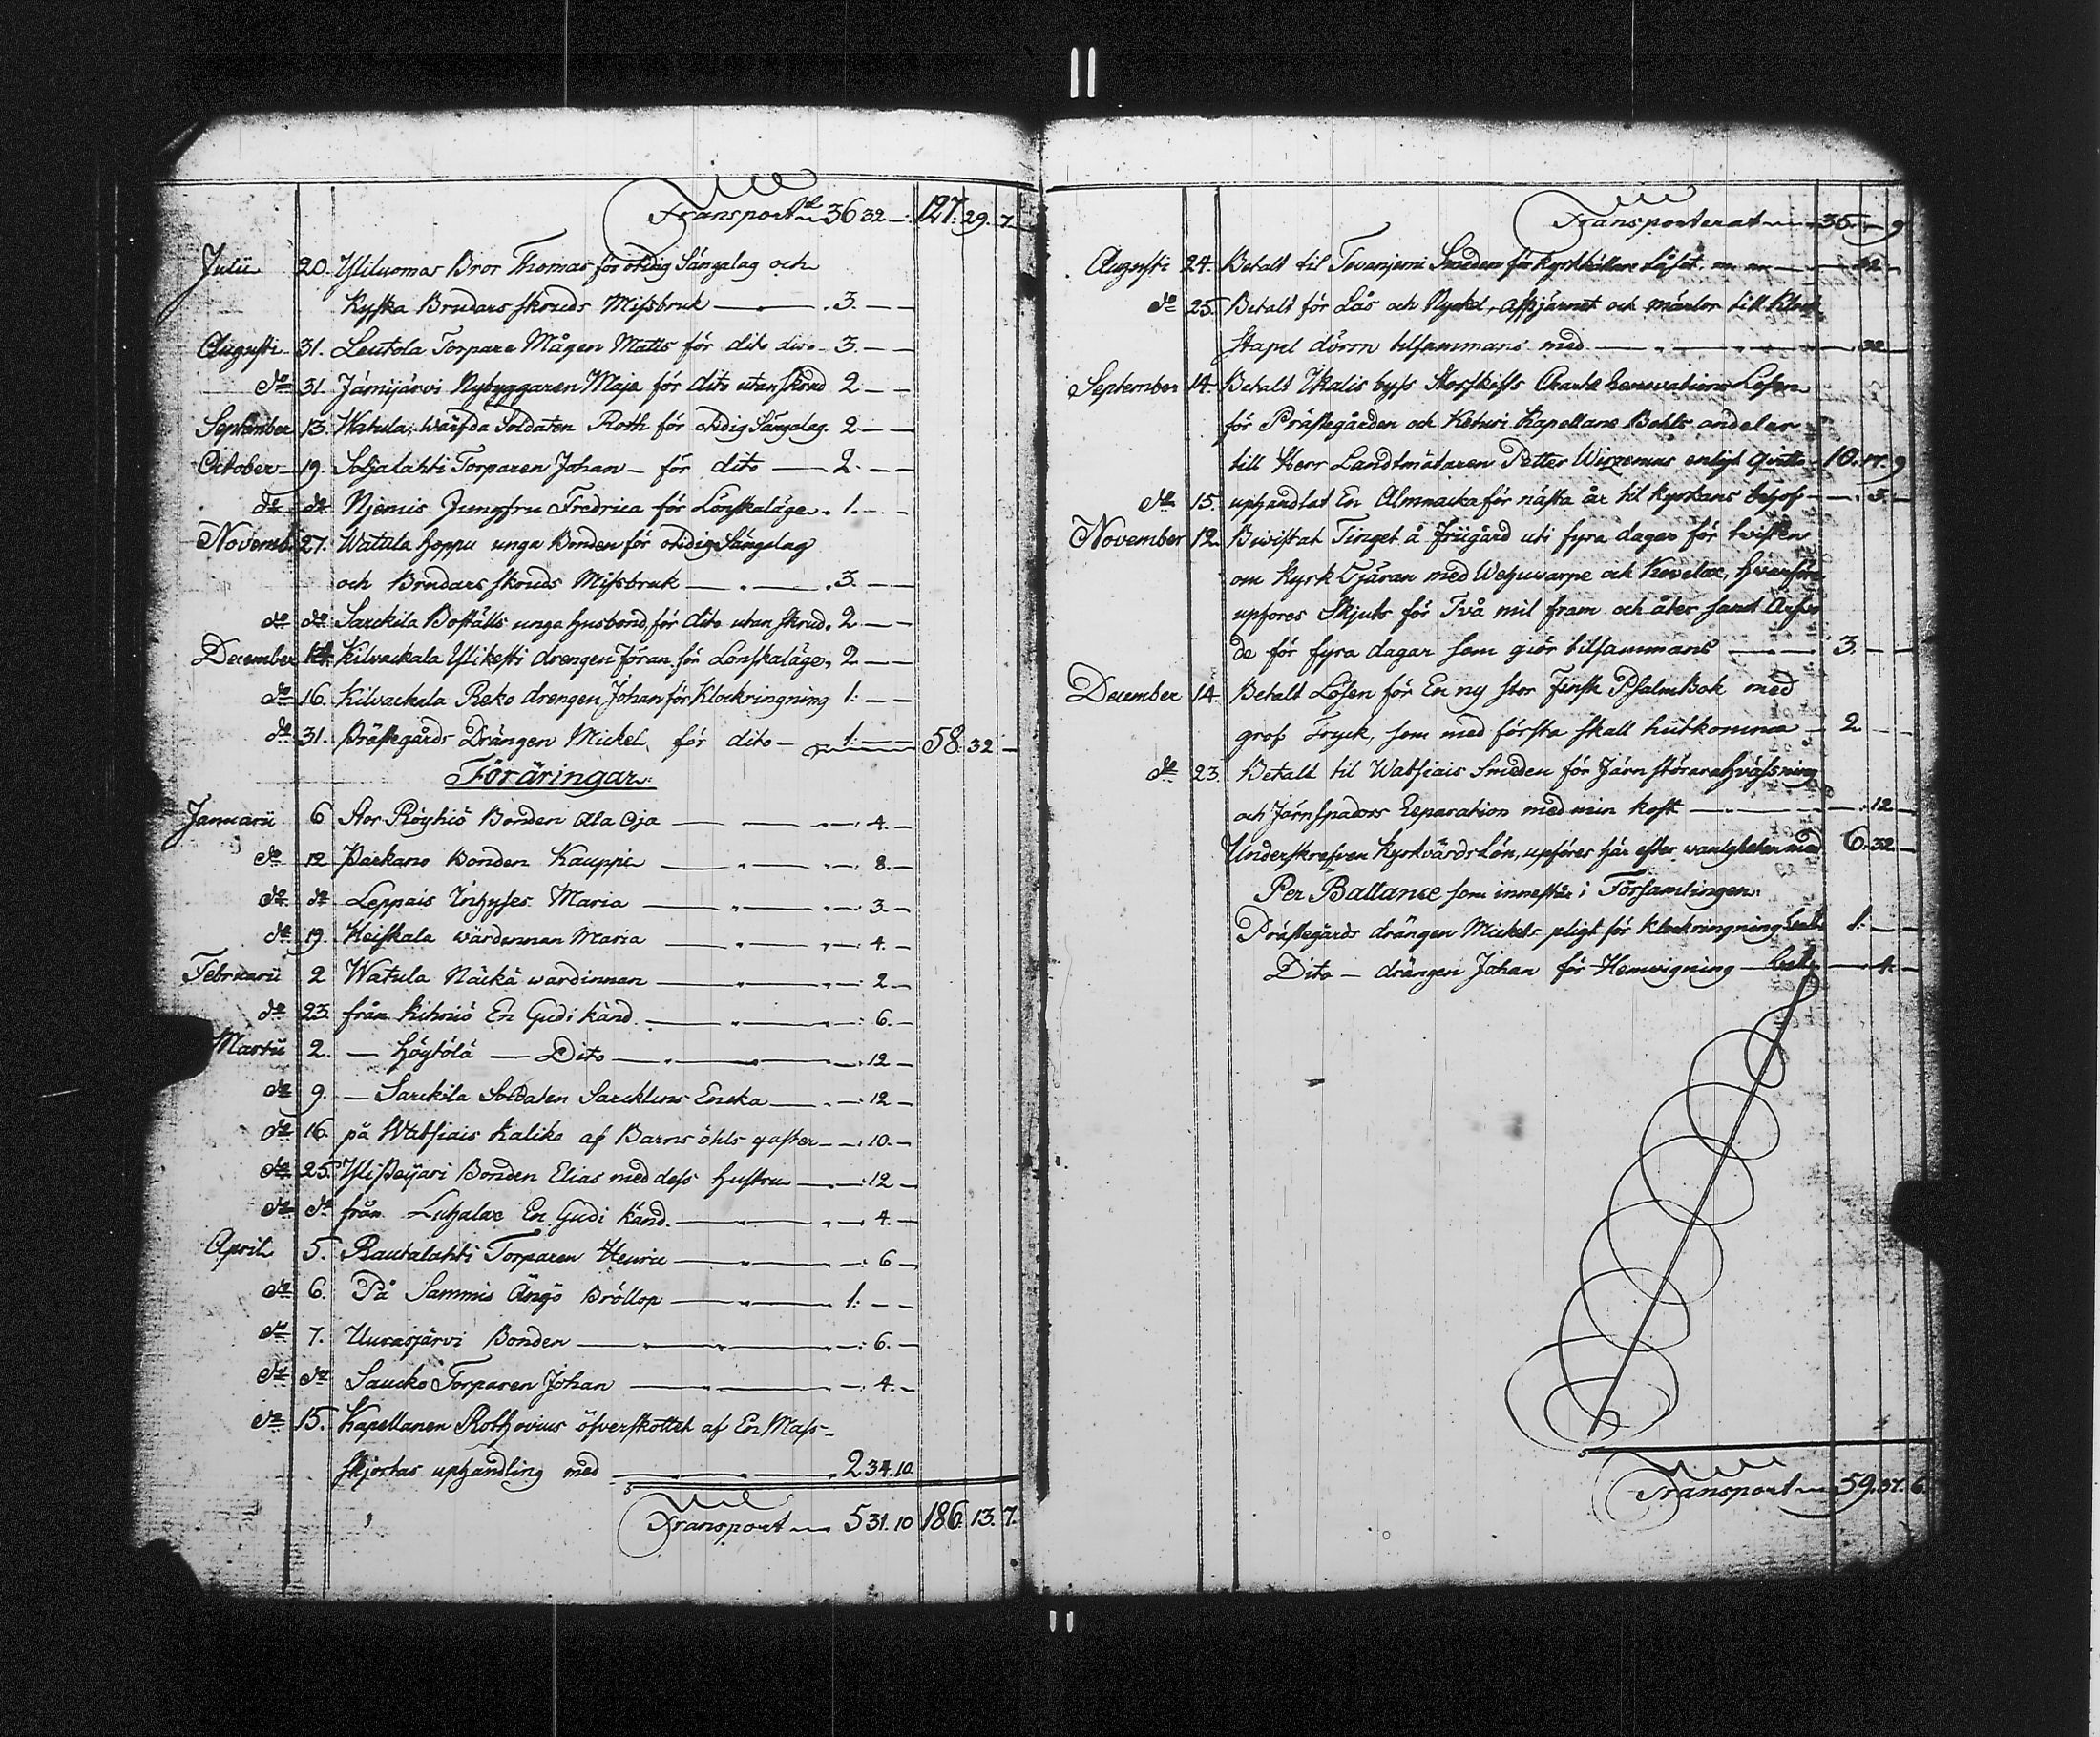 Transport 36 32 — 127. 29. 7
Julii 20. Yliluomas Bror Thomas för otidig Sängalag och
Kyska Brudars skruds Missbruk — 3. — —
Augusti 31. Leutola Torpare Mågen Matts för dito dito 3. — —
do 31. Jämijärvi Nybyggaren Maja för dito utan skrud 2 — —
September 13. Watula, Soldaten Roth för otidig Sängalag. 2 — —
October 19. Torparen Johan — för dito — 2. — —
do do Njemis Jungfru Fredrica för Lönskaläge. 1. — —
Novemb. 27. Watula Hoppu unga Bonden för otidig Sängelag
och Brudars skruds Missbruk — 3. — —
do do Sarckila Boställs unga husbond, för dito utan skrud. 2 — —
December Kilvackala Ylikesti drengen Jöran för Lonskaläge. 2 — —
do 16. Kilvackala Reko drengen Johan för Klockringning 1: — —
do 31. Prästegårds Drängen Mickel, för dito — 1: — — 58. 32 —
Föräringar.
Januarii 6 Stor Röyhiö Bonden Ala Oja — 4. —
do 12 Parkano Bonden Kauppi — 8. —
do do Leppais Inhyses Maria — 3 —
do 19. Heiskala wärdinnan Maria — 4. —
Februarii 2 Watula Näckä wardinnan — 2 —
do 23. från Kihniö En Gudi känd. — 6. —
Martii 2. — Höytölä — Dito — 12 —
do 9. — Sarckila Soldaten Sarcklins Encka — 12 —
do 16. på Watsiais Kaliko af Barns öhls gäster — 10. —
do 25. Yli Peijari Bonden Elias med dess hustru — 12 —
do do från Luhalax En Gudi känd. — 4. —
April 5. Rautalahti Torparen Henric — 6 —
do 6. På Sammis Ängö Bröllop — 1. — —
do 7. Uurasjärvi Bonden — 6. —
do do Saucko Torparen Johan — 4. —
do 15. Kapellanen Rothovius öfverskottet af En Mass-
skjortas uphandling med — 2 34. 10
Transport 5 31. 10 186. 13. 7.
Transporterat 35. — 9
Augusti 24. Betalt til Tevanjemi Smeden för Kyrkkällare Låset.
do 25. Betalt för Lås och Nyckel, och märlor till Klock
stapel dörrn tilsammans med — 32 —
September 14. Betalt Ikalis byss Storskifts Charte Renovations Lösen
för Prästegården och Keturi Kapellans Bohls andelar
till Herr Landtmätaren Petter Wirzenius enligt qvitto 10. 17. 9
do 15. uphandlat En Almanacka för nästa år til kyrkans behof — 3. —
November 12. Biwistat Tinget å Friigård uti fyra dagar för twisten
om Kyrk Tjäran med Wehuwarpe och Kovelax, hvarföre
upföres Skjuts för Två mil fram och åter samt
de för fyra dagar som giör tilsammans — 3. — —
December 14. Betalt Lösen för En ny stor Finsk Psalm Bok med
grof Tryck, som med första skall hiitkomma — 2. — —
do 23. Betalt til Watsiais Smeden för Järn störarnas hvässning
och Järnspadors Reparation med min kost — 12 —
Underskrefven Kyrkvärds Lön, upföres här efter vanligheten med 6. 32. —
Per Ballance som innestår i Församlingen:
Prästegårds drängen Mickels pligt för Klockringning 1: — —
Dito — drängen Johan för Hemvigning — 4. —
Transport 59. 37. 6.